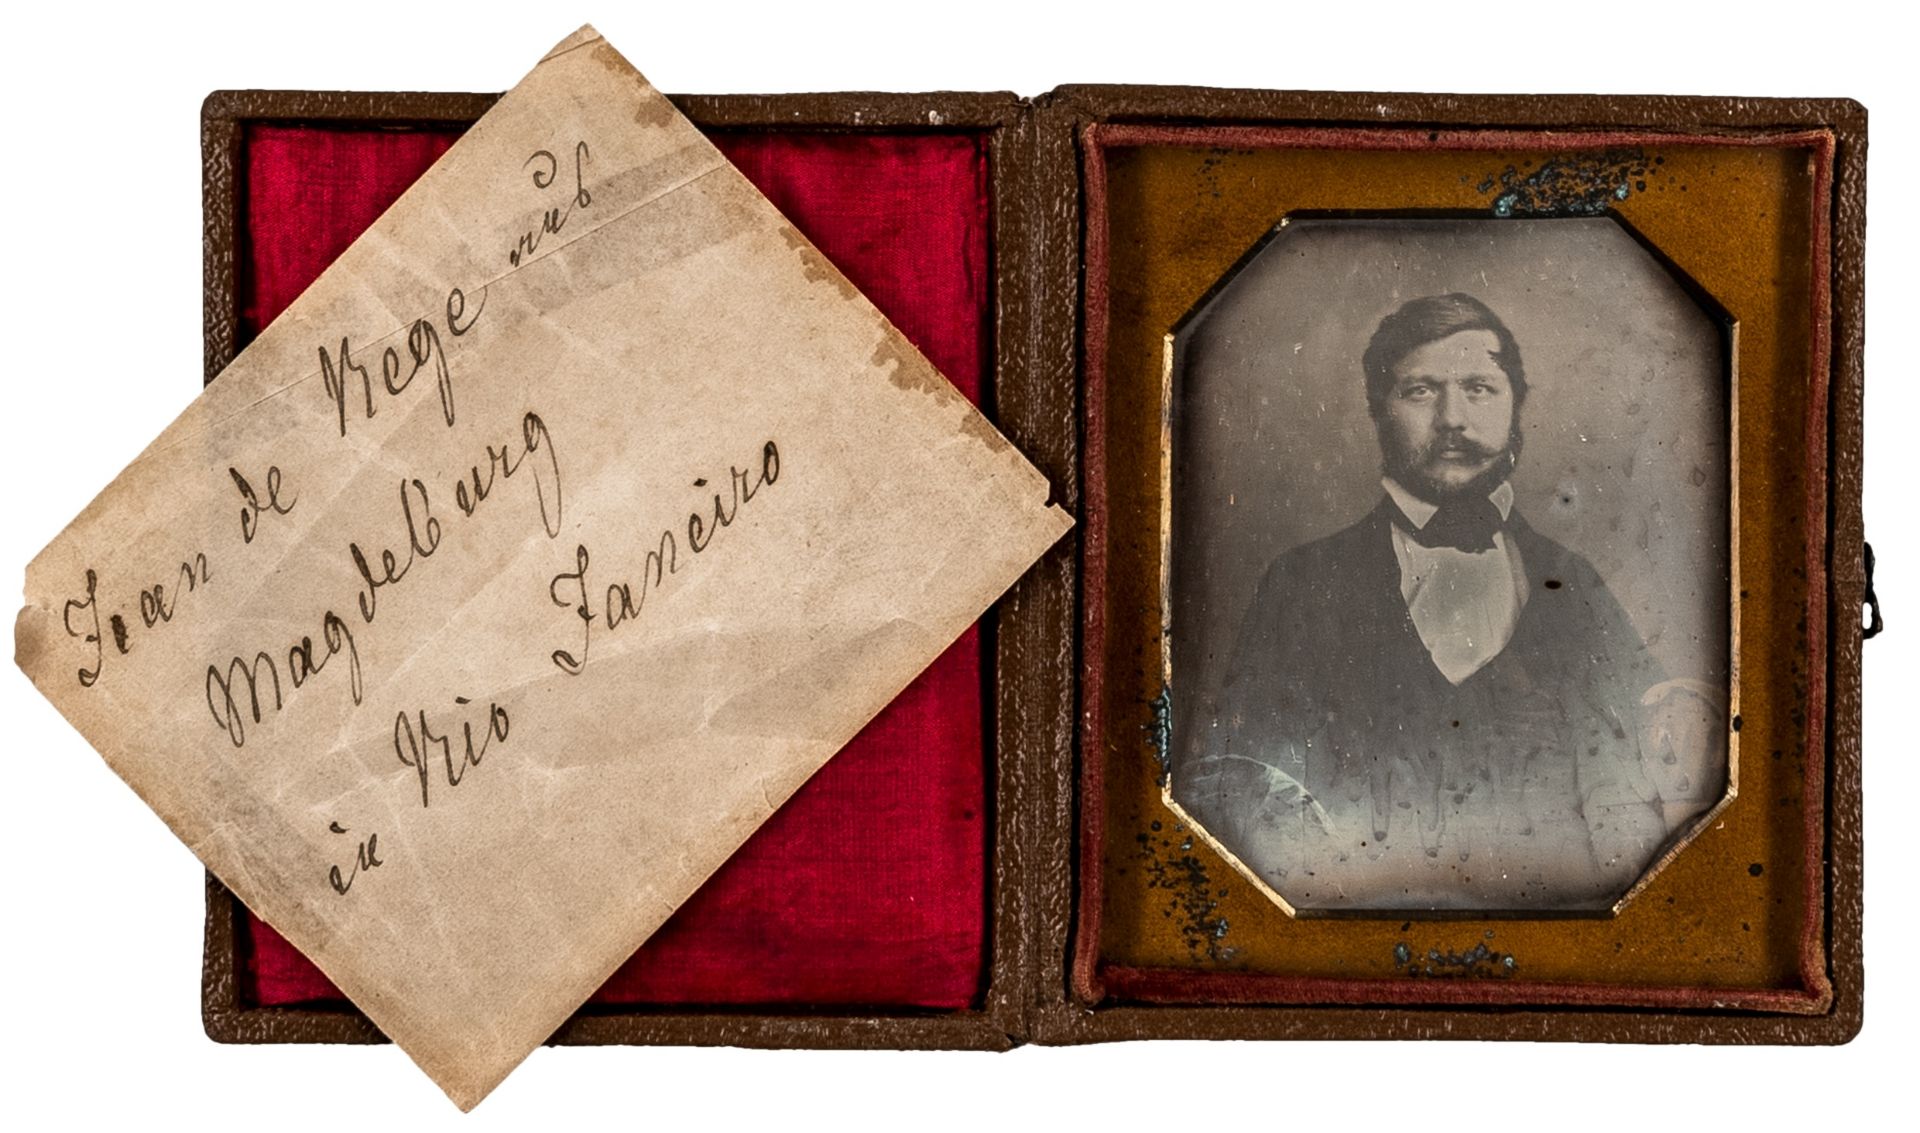 Jean de Rege aus
Magdeburg
in Rio Janeiro